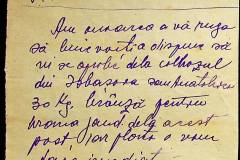 Am onoarea a vă ruga
să binevoiți a dispune să
ni se aprobe dela colhozul
din
30 Kg. brânză pentru
hrana dela acest
post iar plata o vom